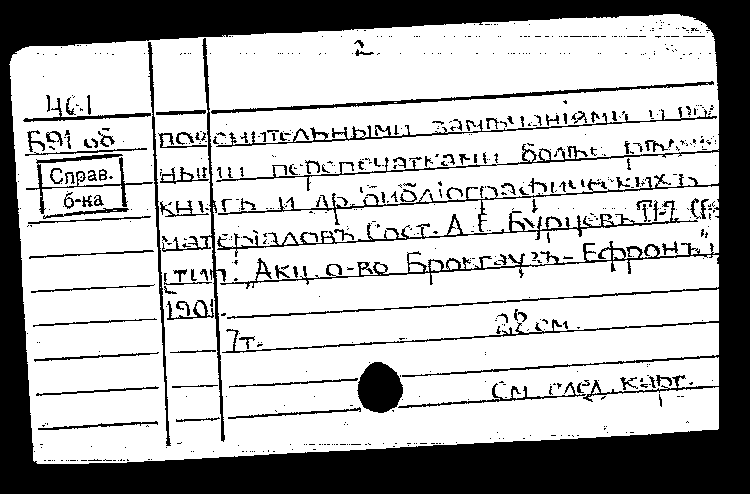 2
461
Б91 об пояснительными замѣчаніями и пол
Справ. ными перепечатками болѣе рѣдких
б-ка книгъ и др. библіографическихъ
матеріаловъ. Сост. А. Е. Бурцевъ. Т.1-7.
[тип. "Акц. о-во Брокгаузъ-Ефронъ"],
1901.
7т. 22 см.
См. след. карт.